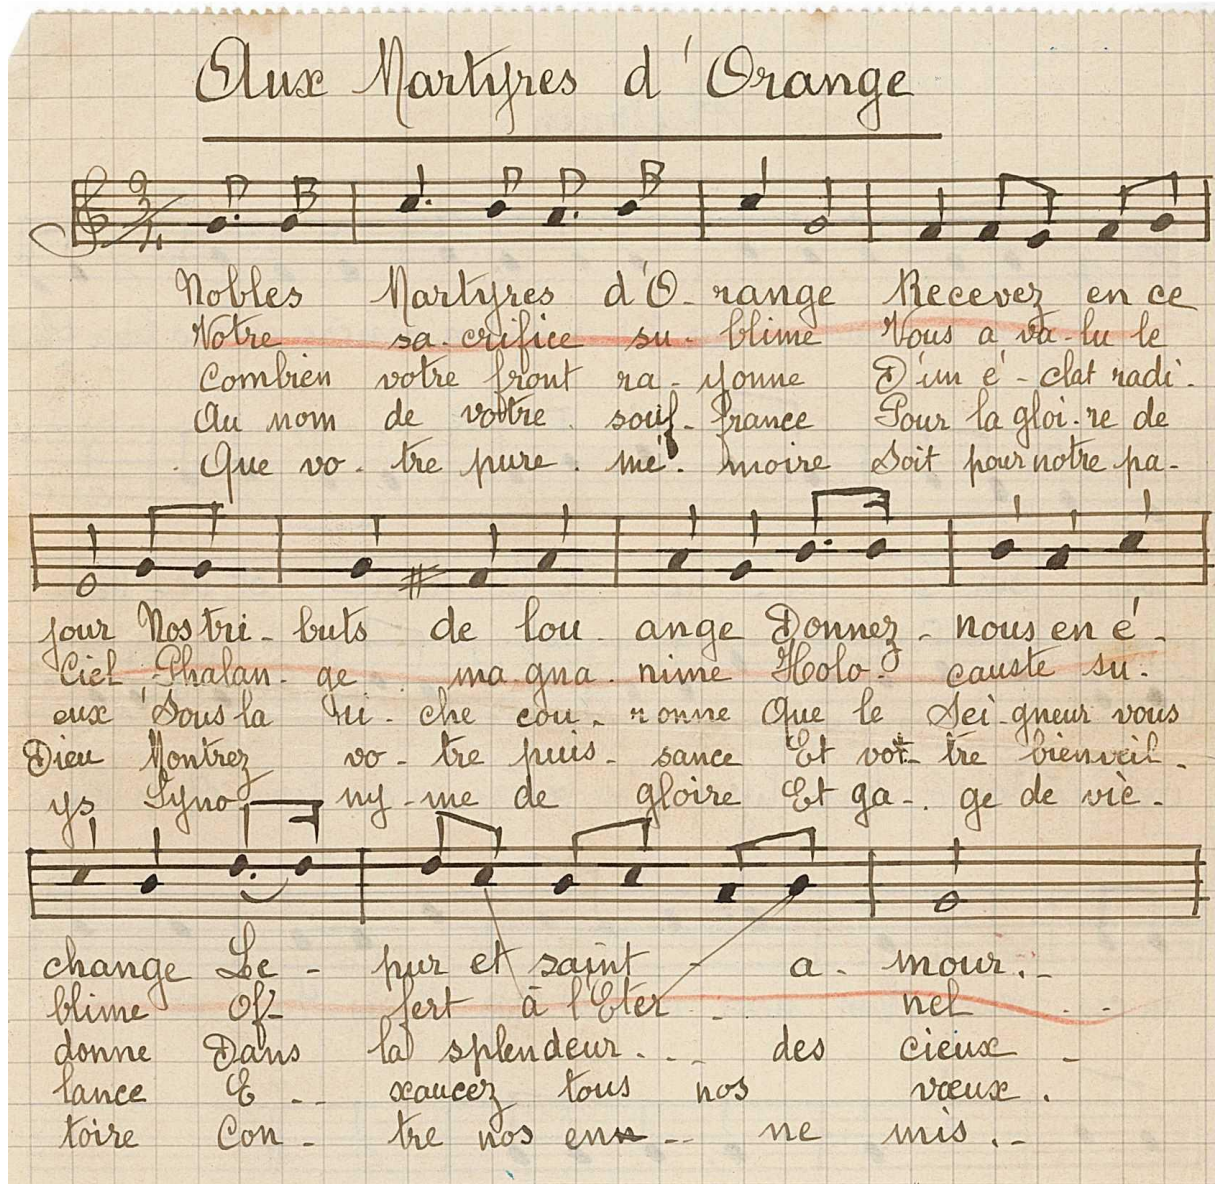 Aux Martyres d'Orange
3/4
Nobles Martyres d'O- range Recevez en ce
Votre sa- crifice su- blime Vous a va- lu le
Combien votre front ra- yonne D'un é- clat radi-
Au nom de votre souf- france Pour la gloi- re de
Que vo- tre pure mé- moire Soit pour notre pa-
jour Nos tri- buts de lou- ange Donnez- nous en é-
Ciel Phalan- ge ma- gna- nime Holo- causte su-
eux Sous la ri- che cou- ronne Que le Sei- gneur vous
Dieu Montrez vo- tre puis- sance Et vot- tre bienveil-
ys Syno- ny- me de gloire Et ga- ge de viè-
change Le- pur et saint - a- mour.-
blime Of- fert à l'Eter - - nel . -
donne Dans la splendeur - - des cieux -
lance E - - xaucez tous nos vœux.
toire Con- tre nos en - - ne mis.-